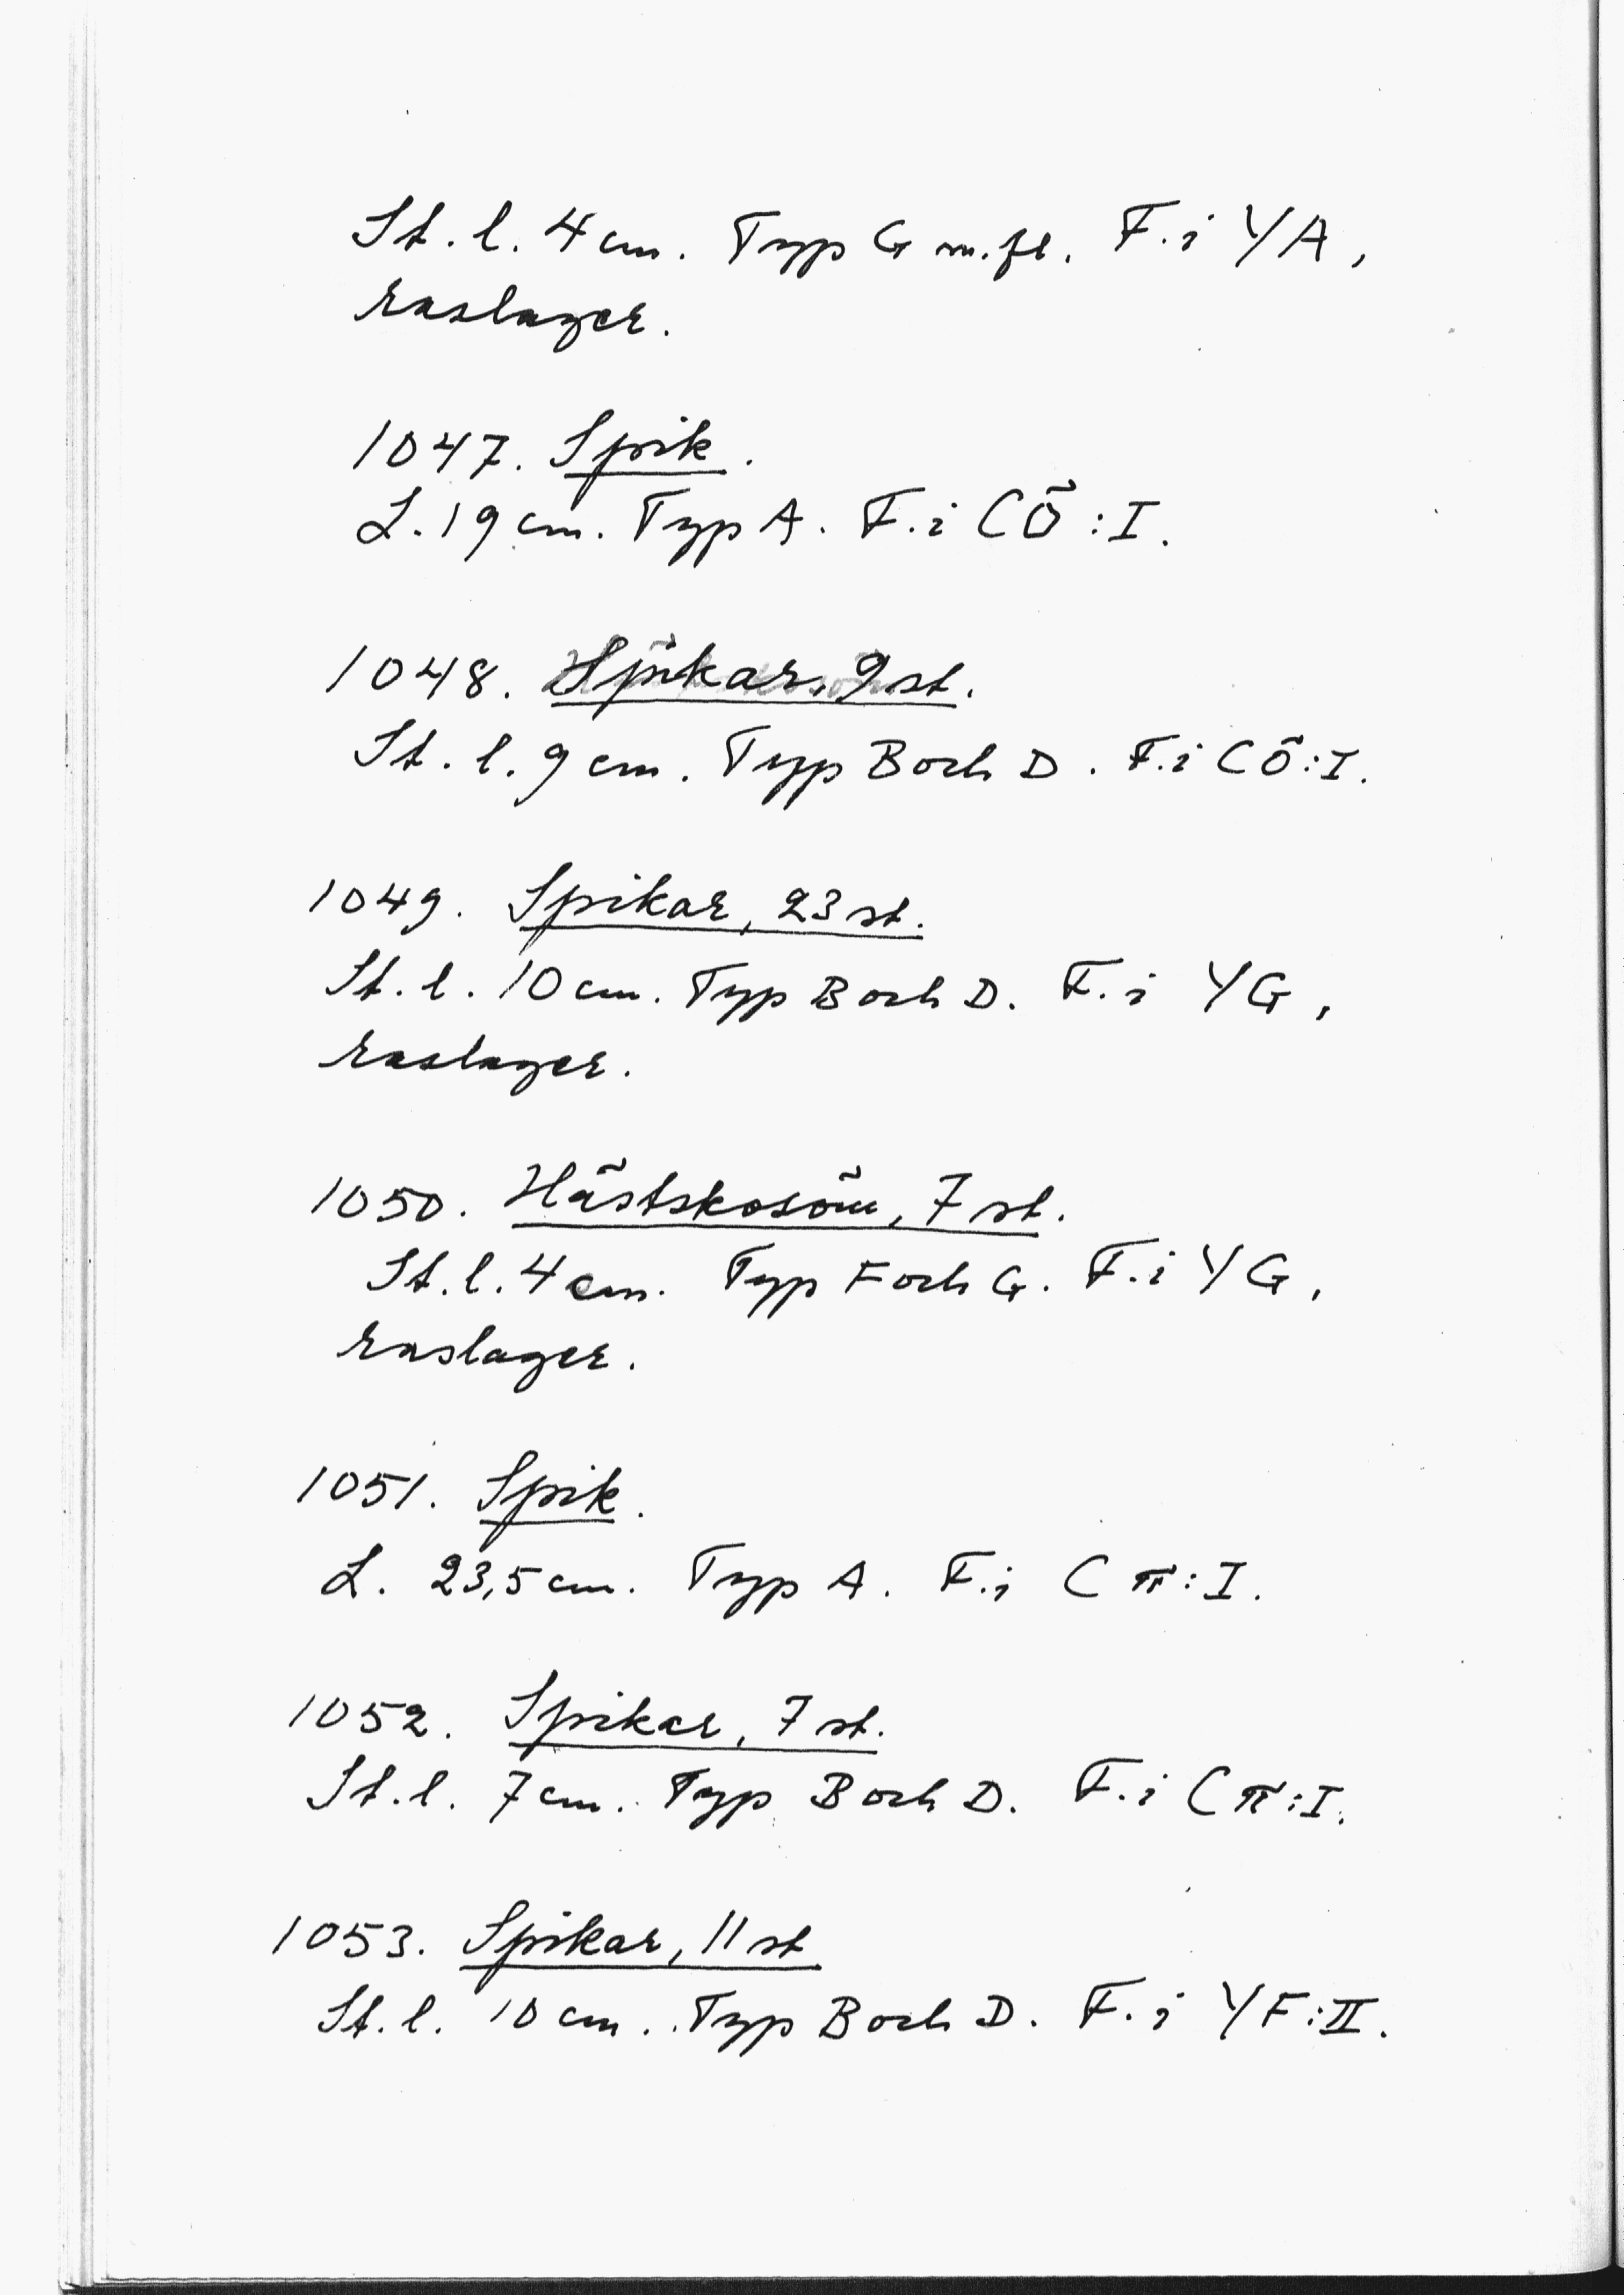 St. l. 4 cm. Typ G m.fl. F. i YA,
raslager.
1047. Spik.
L. 19 cm. Typ A. F. i CÖ:I.
1048. Spikar, 9 st.
St. l. 9 cm. Typ B och D. F. i CÖ:I.
1049. Spikar, 23 st.
St. l. 10 cm. Typ B och D. F. i YG,
raslager.
1050. Hästskosöm, 7 st.
St. l. 4 cm. Typ F och G. F. i YG,
raslager.
1051. Spik.
L. 23,5 cm. Typ A. F. i C π:I.
1052. Spikar, 7 st.
St. l. 7 cm. Typ B och D. F. i C π:I.
1053. Spikar, 11 st
St. l. 10 cm. Typ B och D. F. i YF:II.